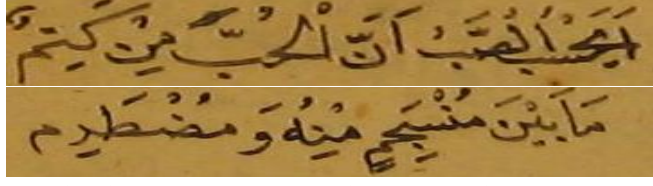 اَيَحْسَبُ الصَّبُّ اَنَّ الْحُبَّ مِنْ كَتِمٌ
مَا بَيْنَ مُنْسَجِمٍ مِنْهُ وَ مُضْطَرِم